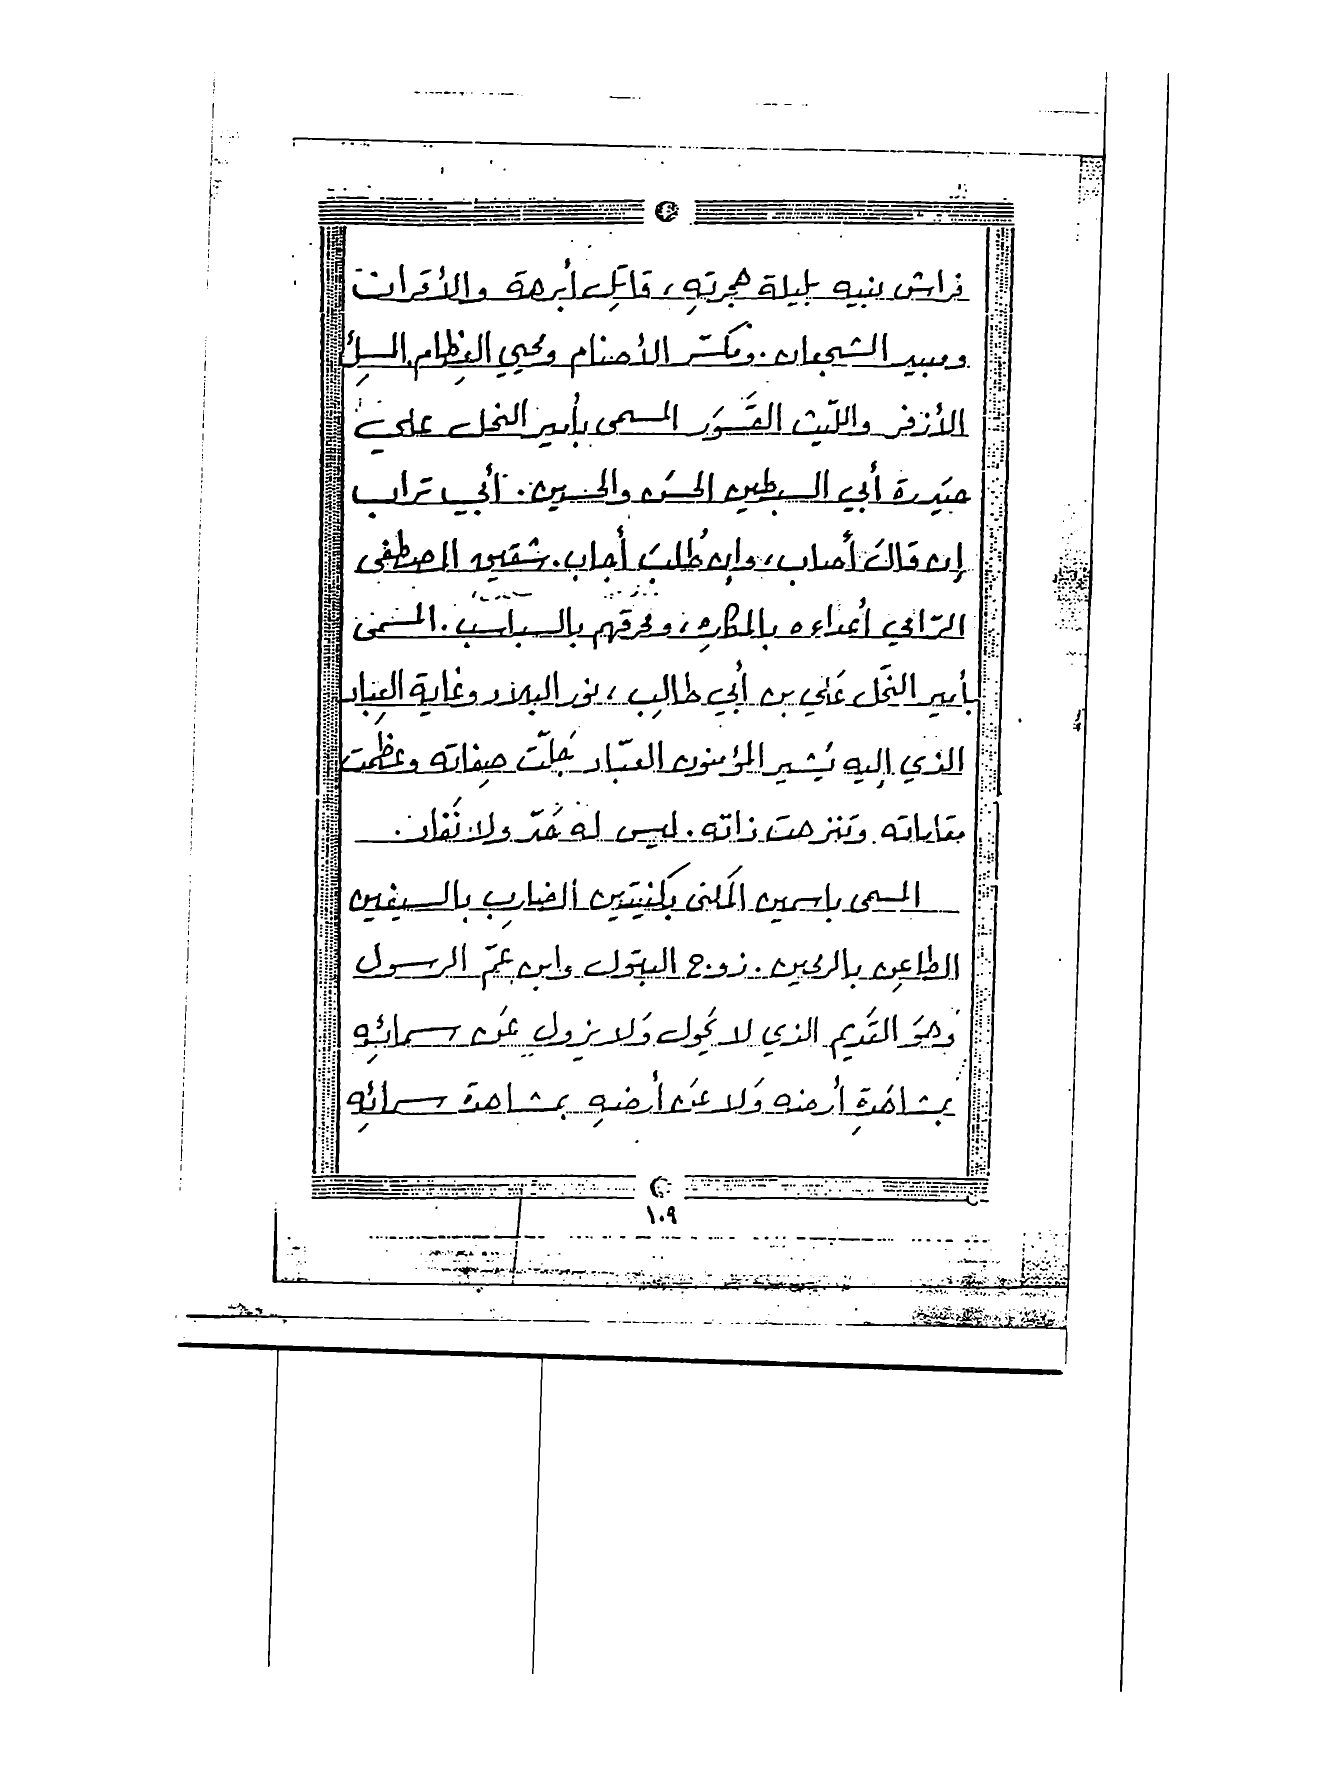 فراش نبيه بليلة هجرتهِ، قاتِل أبرهة والأقران
ومبيد الشجعان. ومكسّر الأصنام ومحيي العِظام
الأزفر واللّيث القَسْوَر المسمى بأمير النحل علي
حيَدرة أبي السبطين الحسَن والحسين. أبي تراب
إن قالَ أصاب، وإن طُلبَ أجاب. شقيق المصطفى
الرّامي أعداءه بالمكارِه، ومحرقهم بالسباسب. المسَمى
بأمير النحَل عَلي بن أبي طالِب، نور البلاد وغاية العِباد
الذي إليه يُشير المؤمنون العبّاد جَلّت صِفاته وعظمت
مقاماته وتنزهت ذاته. ليس له حَدّ ولا نَفاد.
المسمى باسمين المكَنى بكنيَتين الضارِب بالسيفين
الطاعِن بالرمحين. زوج البتول وابن عمّ الرسول
وهوَ القَديم الذي لا يَحول وَلا يزول عَن سمائِهِ
بمشاهَدةِ أرضه وَلا عَن أرضهِ بمشاهدة سمائِهِ
١٠٩